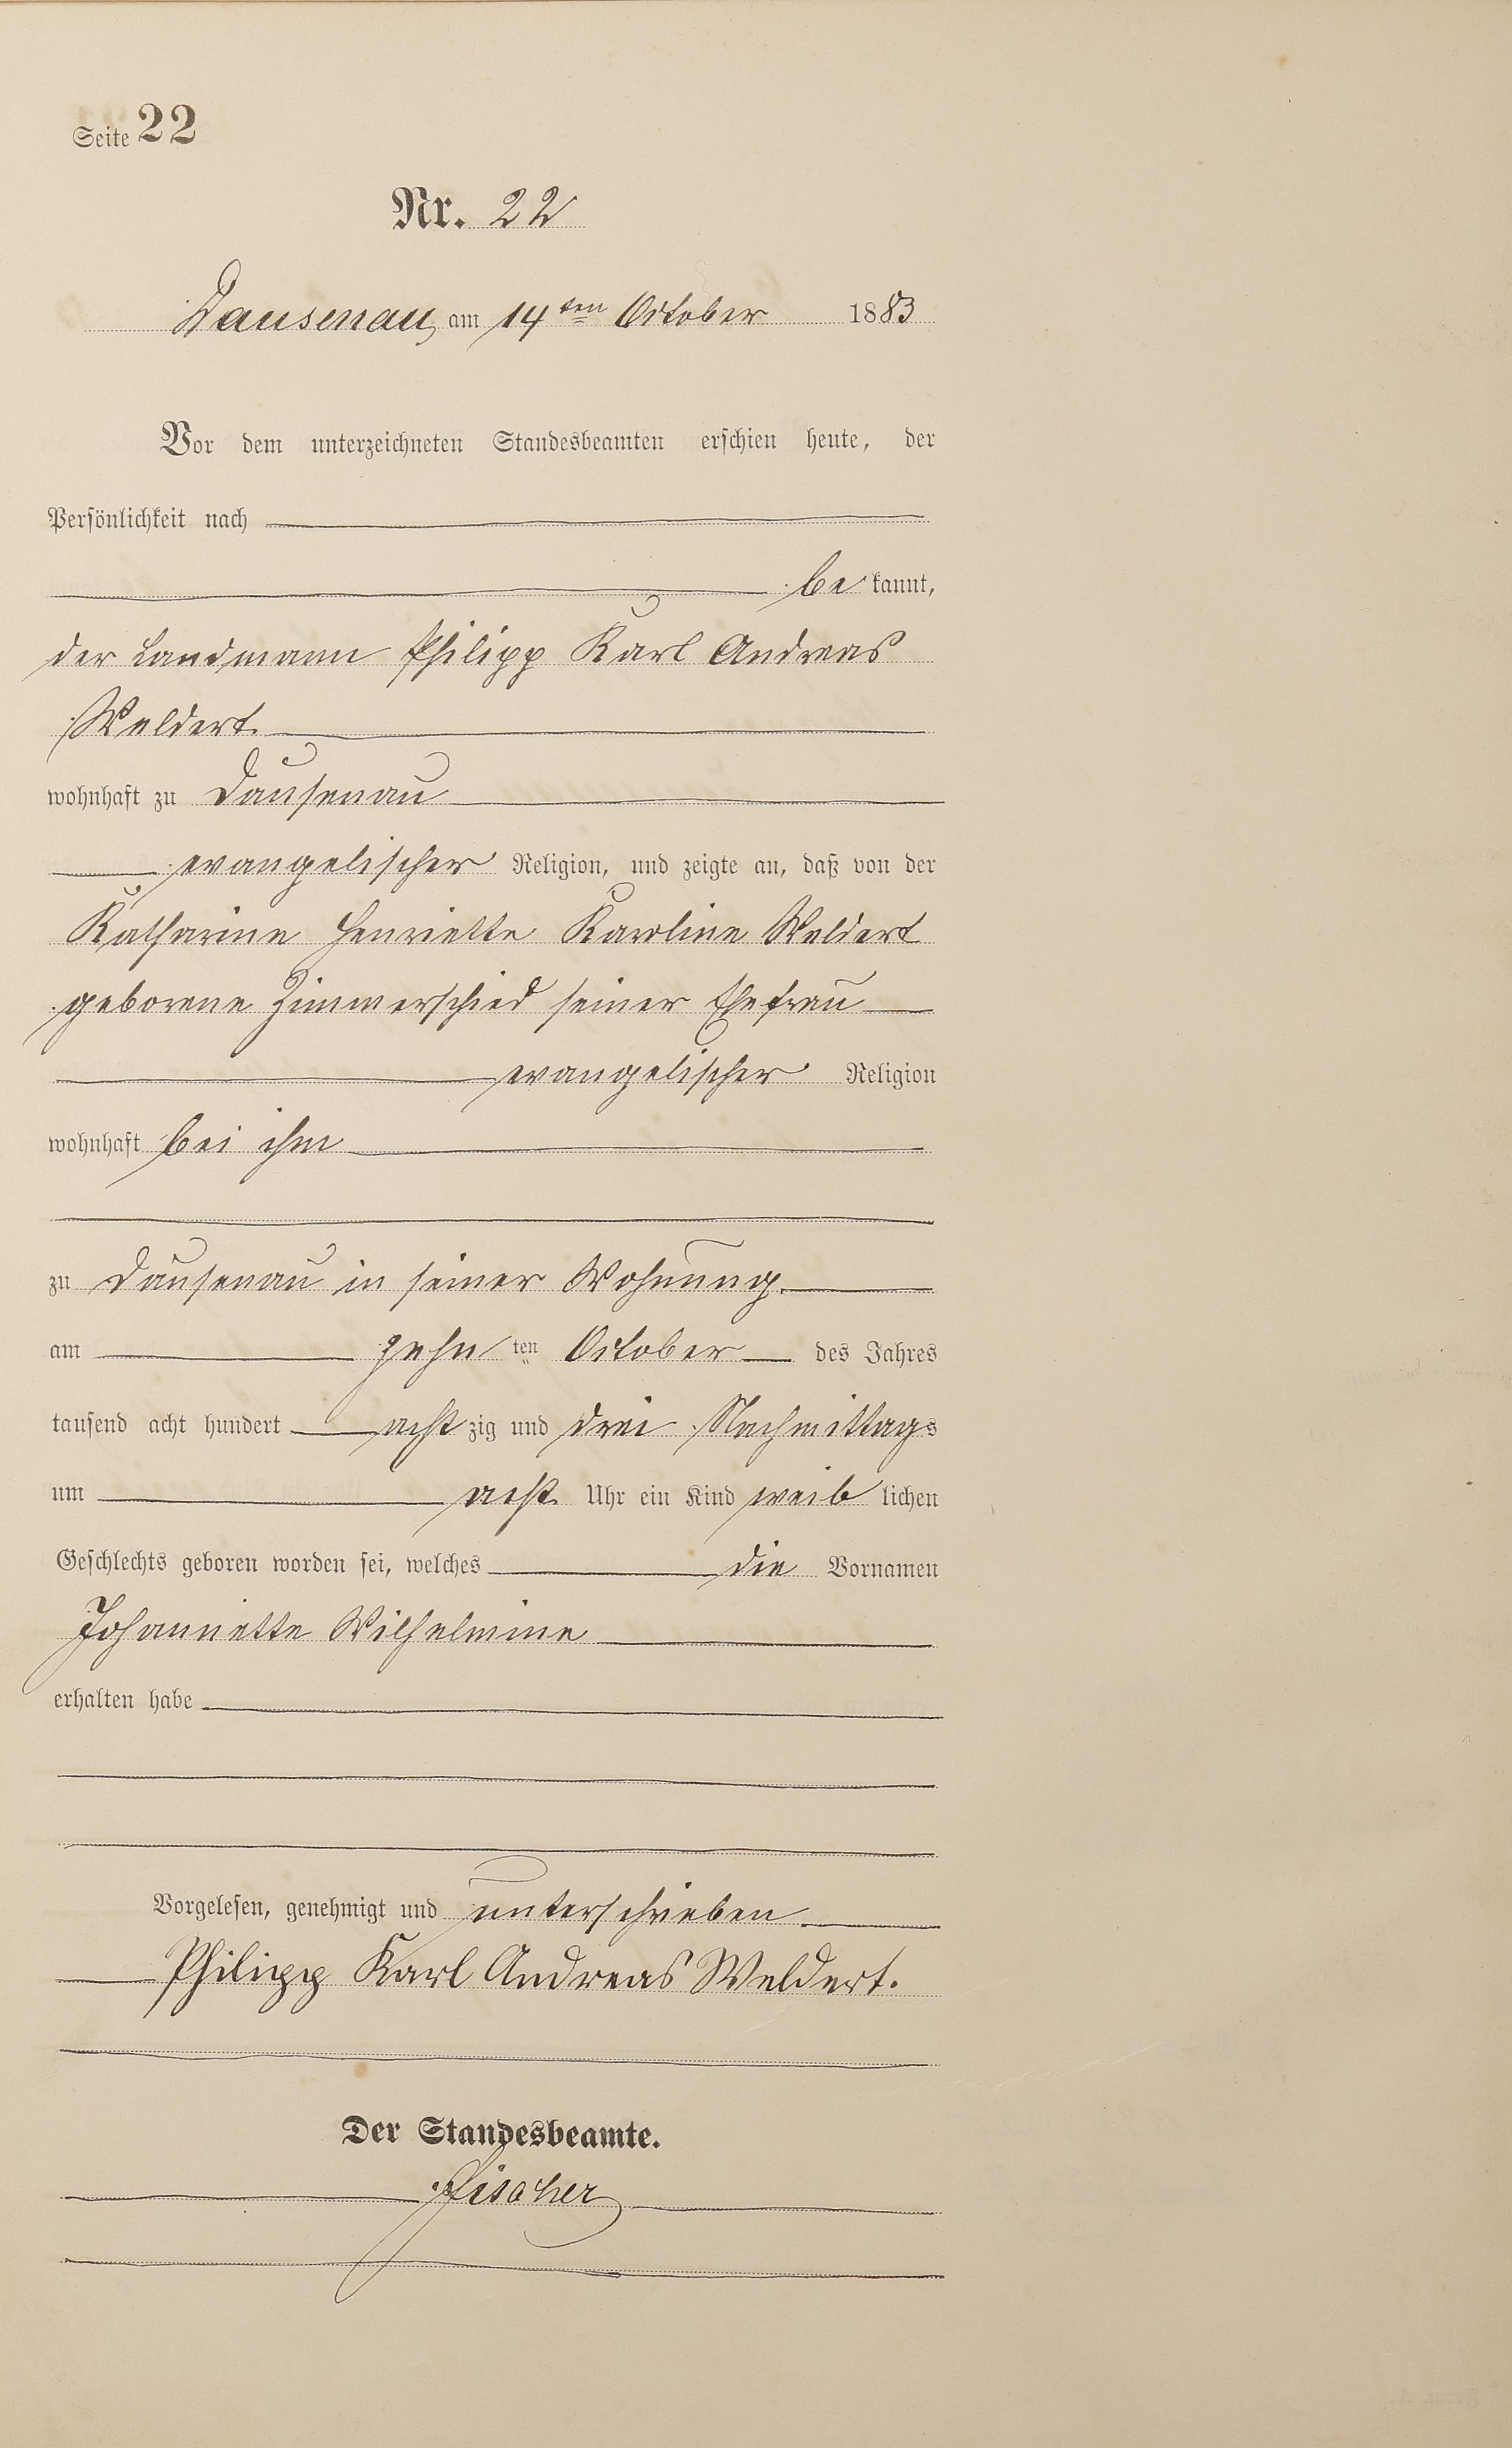 Seite 22
Nr. 22
Dausenau, am 14ten October 1883
Vor dem unterzeichneten Standesbeamten erschien heute, der
Persönlichkeit nach
be kannt,
der Landmann Philipp Karl Andreas
Weldert
wohnhaft zu Dausenau
evangelischer Religion, und zeigte an, daß von der
Katharine Henriette Karoline Weldert
geborene Zimmerschied seiner Ehefrau
evangelischer Religion
wohnhaft bei ihm
zu Dausenau in seiner Wohnung
am zehn ten October des Jahres
tausend acht hundert acht zig und drei Nachmittags
um acht Uhr ein Kind weib lichen
Geschlechts geboren worden sei, welches die Vornamen
Johannette Wilhelmine
erhalten habe
Vorgelesen, genehmigt und unterschrieben
Philipp Karl Andreas Weldert.
Der Standesbeamte.
Fischer